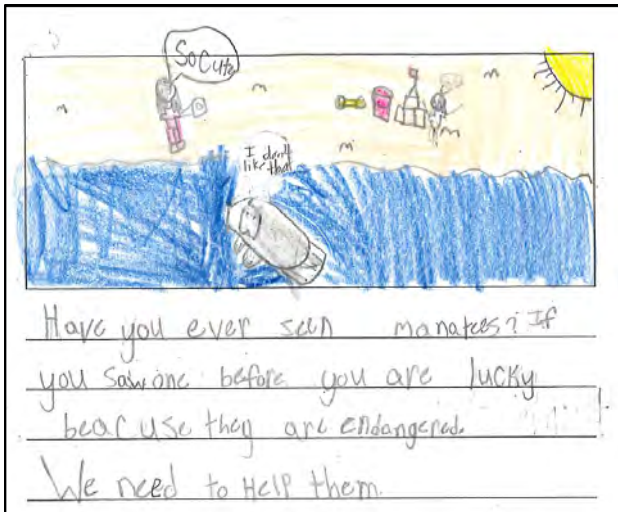 So Cute
I don't
like that
Have you ever seen manatees? If
you saw one before you are lucky
beacuse they are endangered.
We need to Help them.